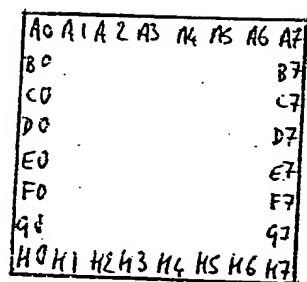 A0 A1 A2 A3 A4 A5 A6 A7
B0 B7
C0 C7
D0 D7
E0 E7
F0 F7
G0 G7
H0 H1 H2 H3 H4 H5 H6 H7